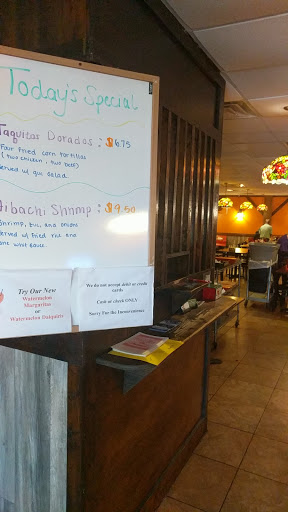 Today's Special
Taquitos Dorados : $6.75
Four fried corn tortillas
(two chicken, two beef)
Served w/ guac salad.
Hibachi Shrimp : $9.50
Shrimp, and onions
Served w/ fried rice and
white sauce.
Try Our New
Watermelon
Margaritas
or
Watermelon Daiquiris
We do not accept debit or credit
cards
Cash or check ONLY
Sorry For the Inconvenience